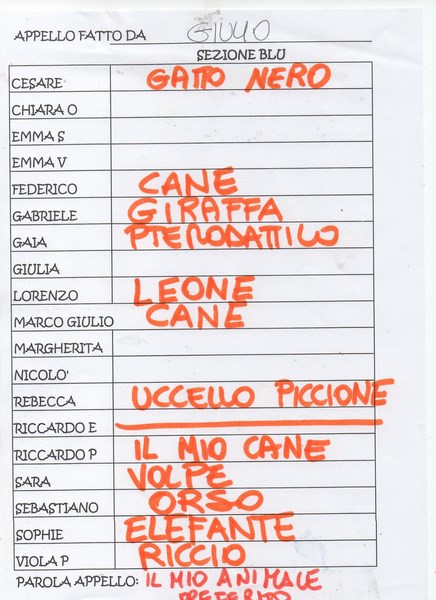 APPELLO FATTO DA GIULIO
SEZIONE BLU
CESARE GATTO NERO
CHIARA O
EMMA S
EMMA V
FEDERICO CANE
GABRIELE GIRAFFA
GAIA PTERODATTILO
GIULIA
LORENZO LEONE
MARCO GIULIO CANE
MARGHERITA
NICOLO'
REBECCA UCCELLO PICCIONE
RICCARDO E
RICCARDO P IL MIO CANE
SARA VOLPE
SEBASTIANO ORSO
SOPHIE ELEFANTE
VIOLA P RICCIO
PAROLA APPELLO: IL MIO ANIMALE
PREFERITO